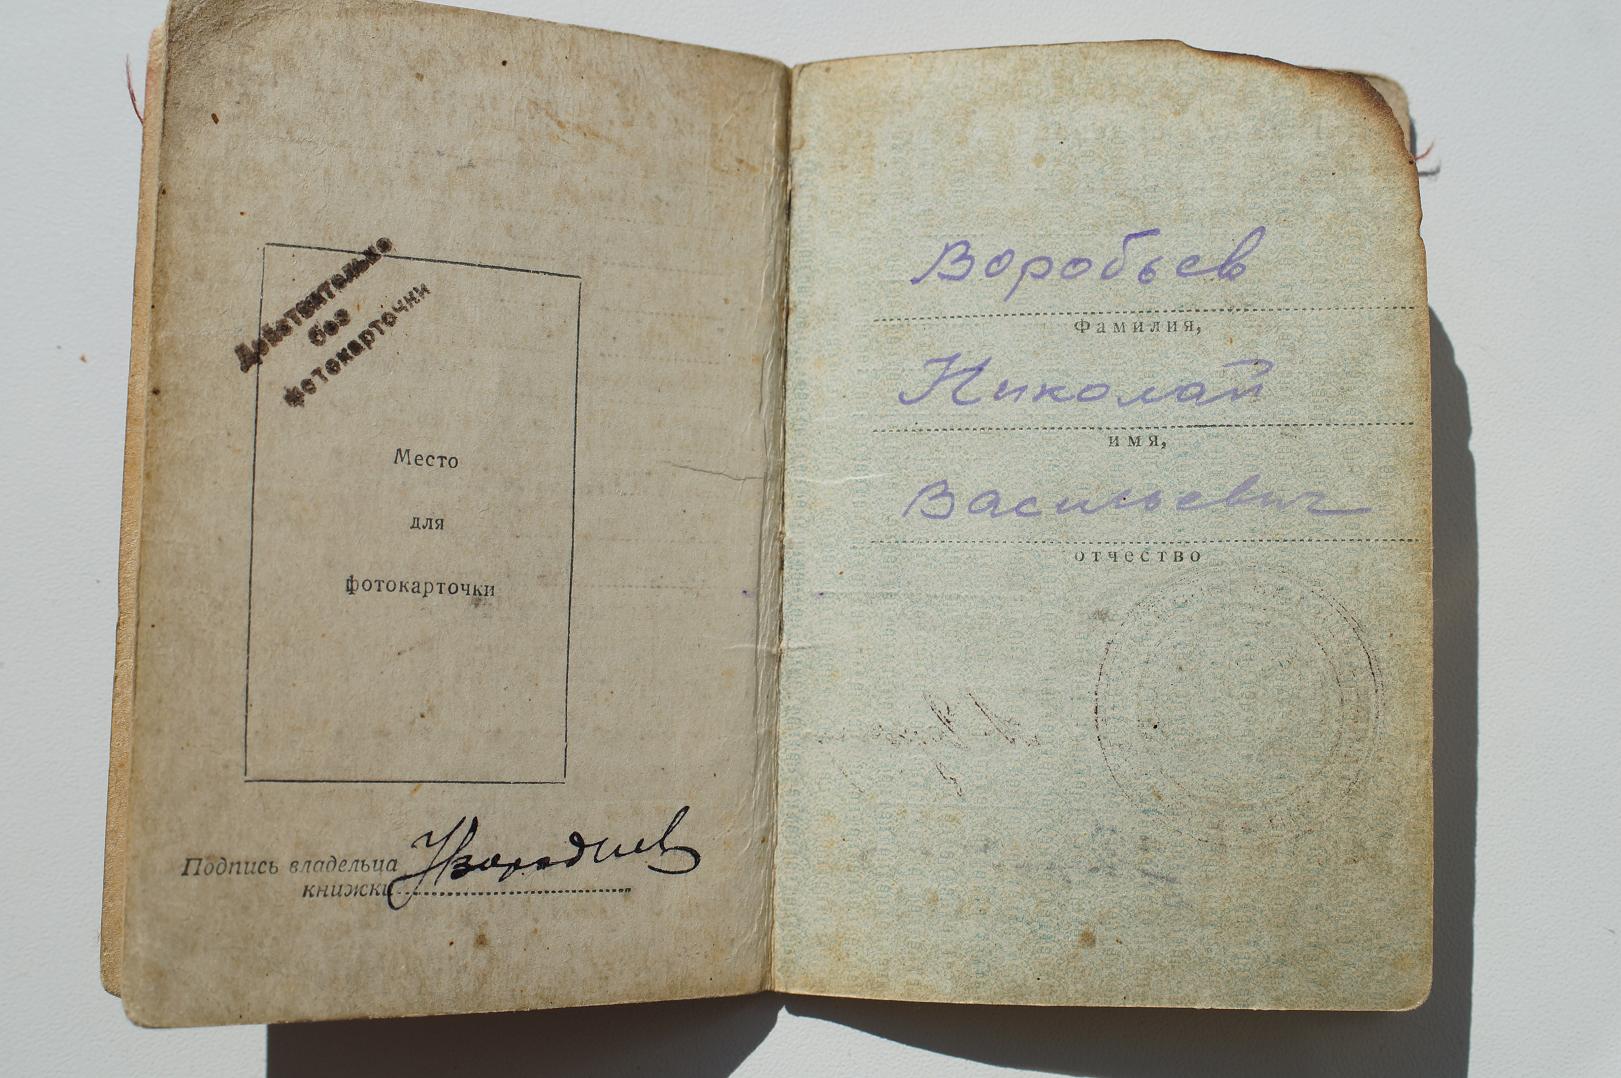 Действительно
без
фотокарточки
Место
для
фотокарточки
Подпись владельца
книжки
Воробьев
Фамилия,
Николай
имя,
Васильевич
отчество